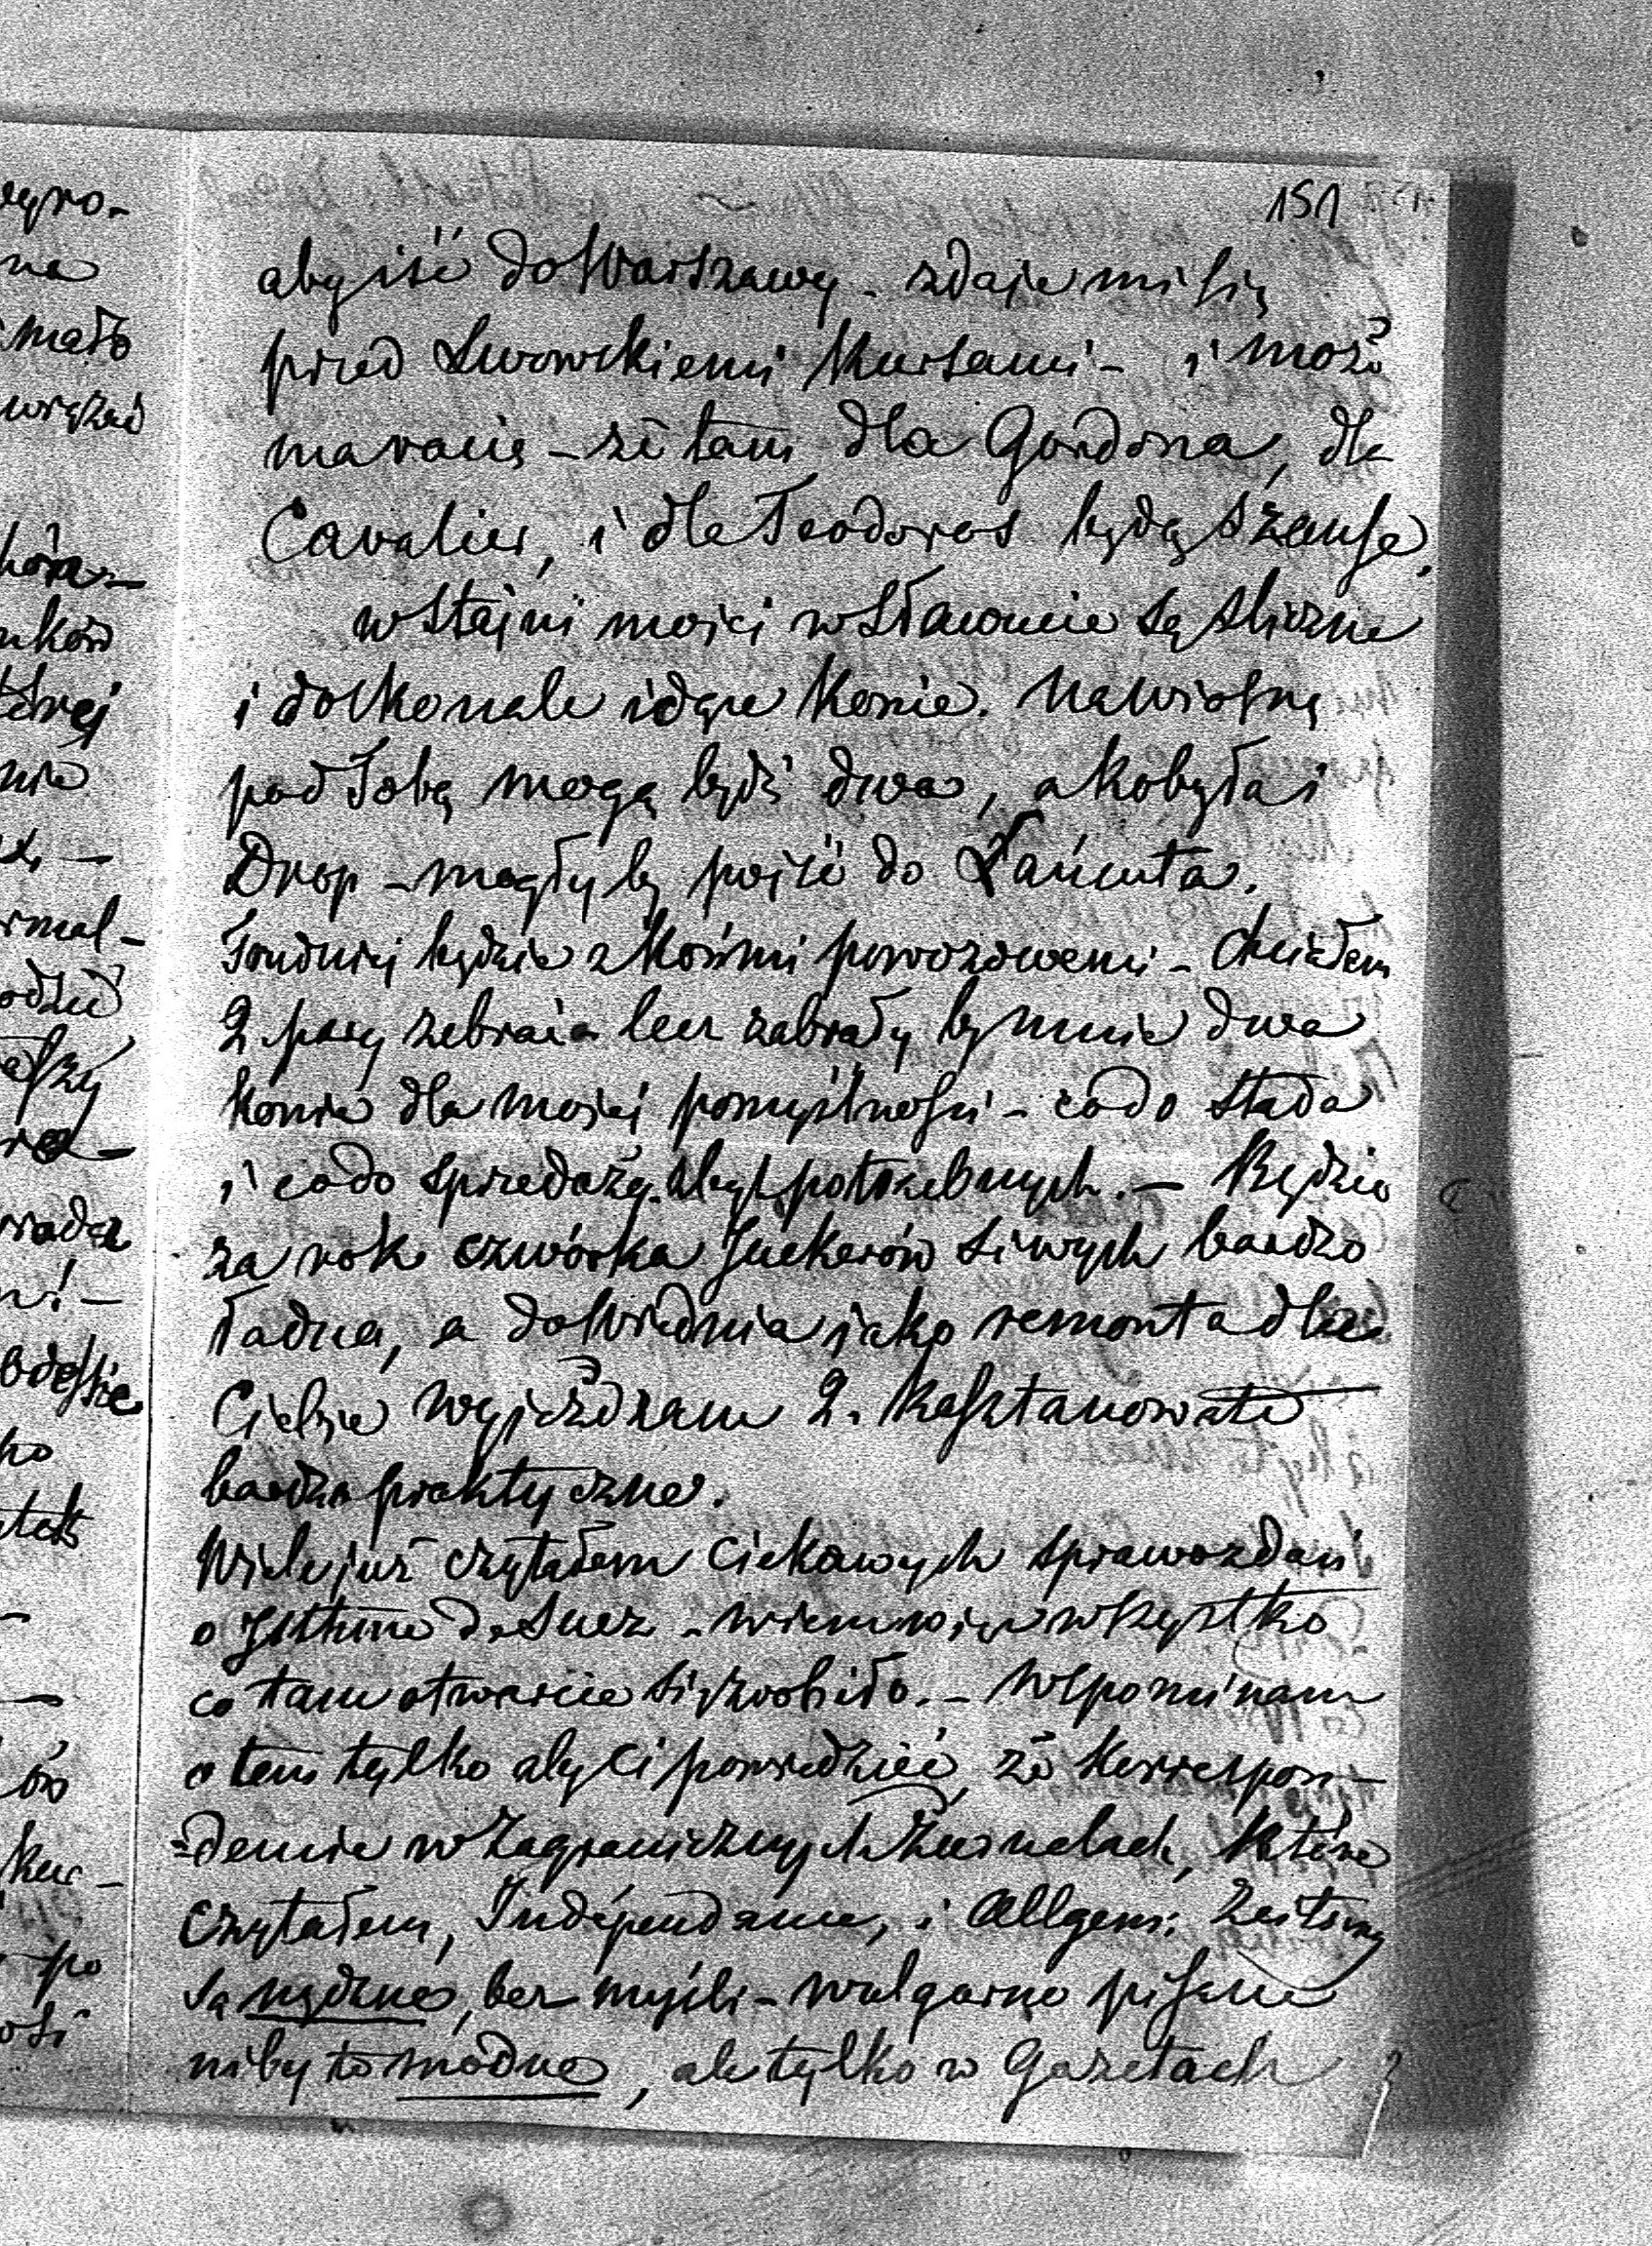 151
aby iść do Warszawy - zdaje mi się
przed Lwowskiemi Kursami - i może
ma racię - że tam dla Gordona, dla
Cavalier, i dla Teodoros będą szanse.
w Stajni mojej w Sławucie są śliczne
i doskonale idące Konie. Na wiosnę
pod Tobą mogą bydź dwa, a Kobyła i
Drop - mogłyby pójść do Łańcuta.
Trudniej będzie z Końmi powozowemi - chciałem
2. pary zebrać lecz zabrały by mnie dwa
Konie dla mojej pomyślności - co do Stada
i co do sprzedaży. zbyt potrzebnych. - Będzie
za rok czwórka Juckerów siwych bardzo
ładna, a do Wiednia jako remonta dla
Ciebie wyjeżdżam 2. Kasztanowate
bardzo praktyczne.
Wiele już czytałem ciekawych sprawozdań
o Isthme de Suez - wiem więc wszystko
co tam otwarcie się zrobiło. - Wspominam
o tem tylko aby Ci powiedzieć, że Korrespon-
=dencie w Zagranicznych Żurnalach, które
czytałem, Indépendance, i Allgem: Zeitung
są nędzne, bez myśli - wulgarne pisane
niby to modne, ale tylko w Gazetach